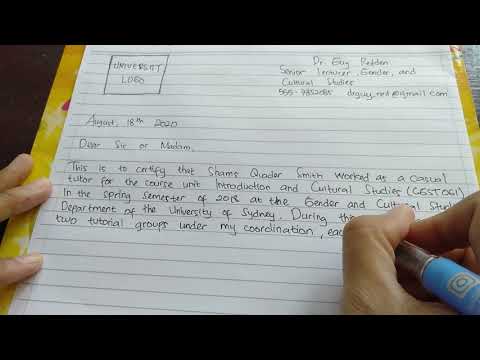 UNIVERSITY
LOGO
Dr. Guy Redden
Senior lecturer, Gender, and
Cultural Studies
August, 18th 2020
Dear Sir or Madam,
This is to certify that Shams Quader Smith worked as a casual
tutor for the course unit Introduction and Cultural Studies
In the spring semester of 2018 at the Gender and Cultural
Department of the University of Sydney. During
two tutorial groups under my coordination,